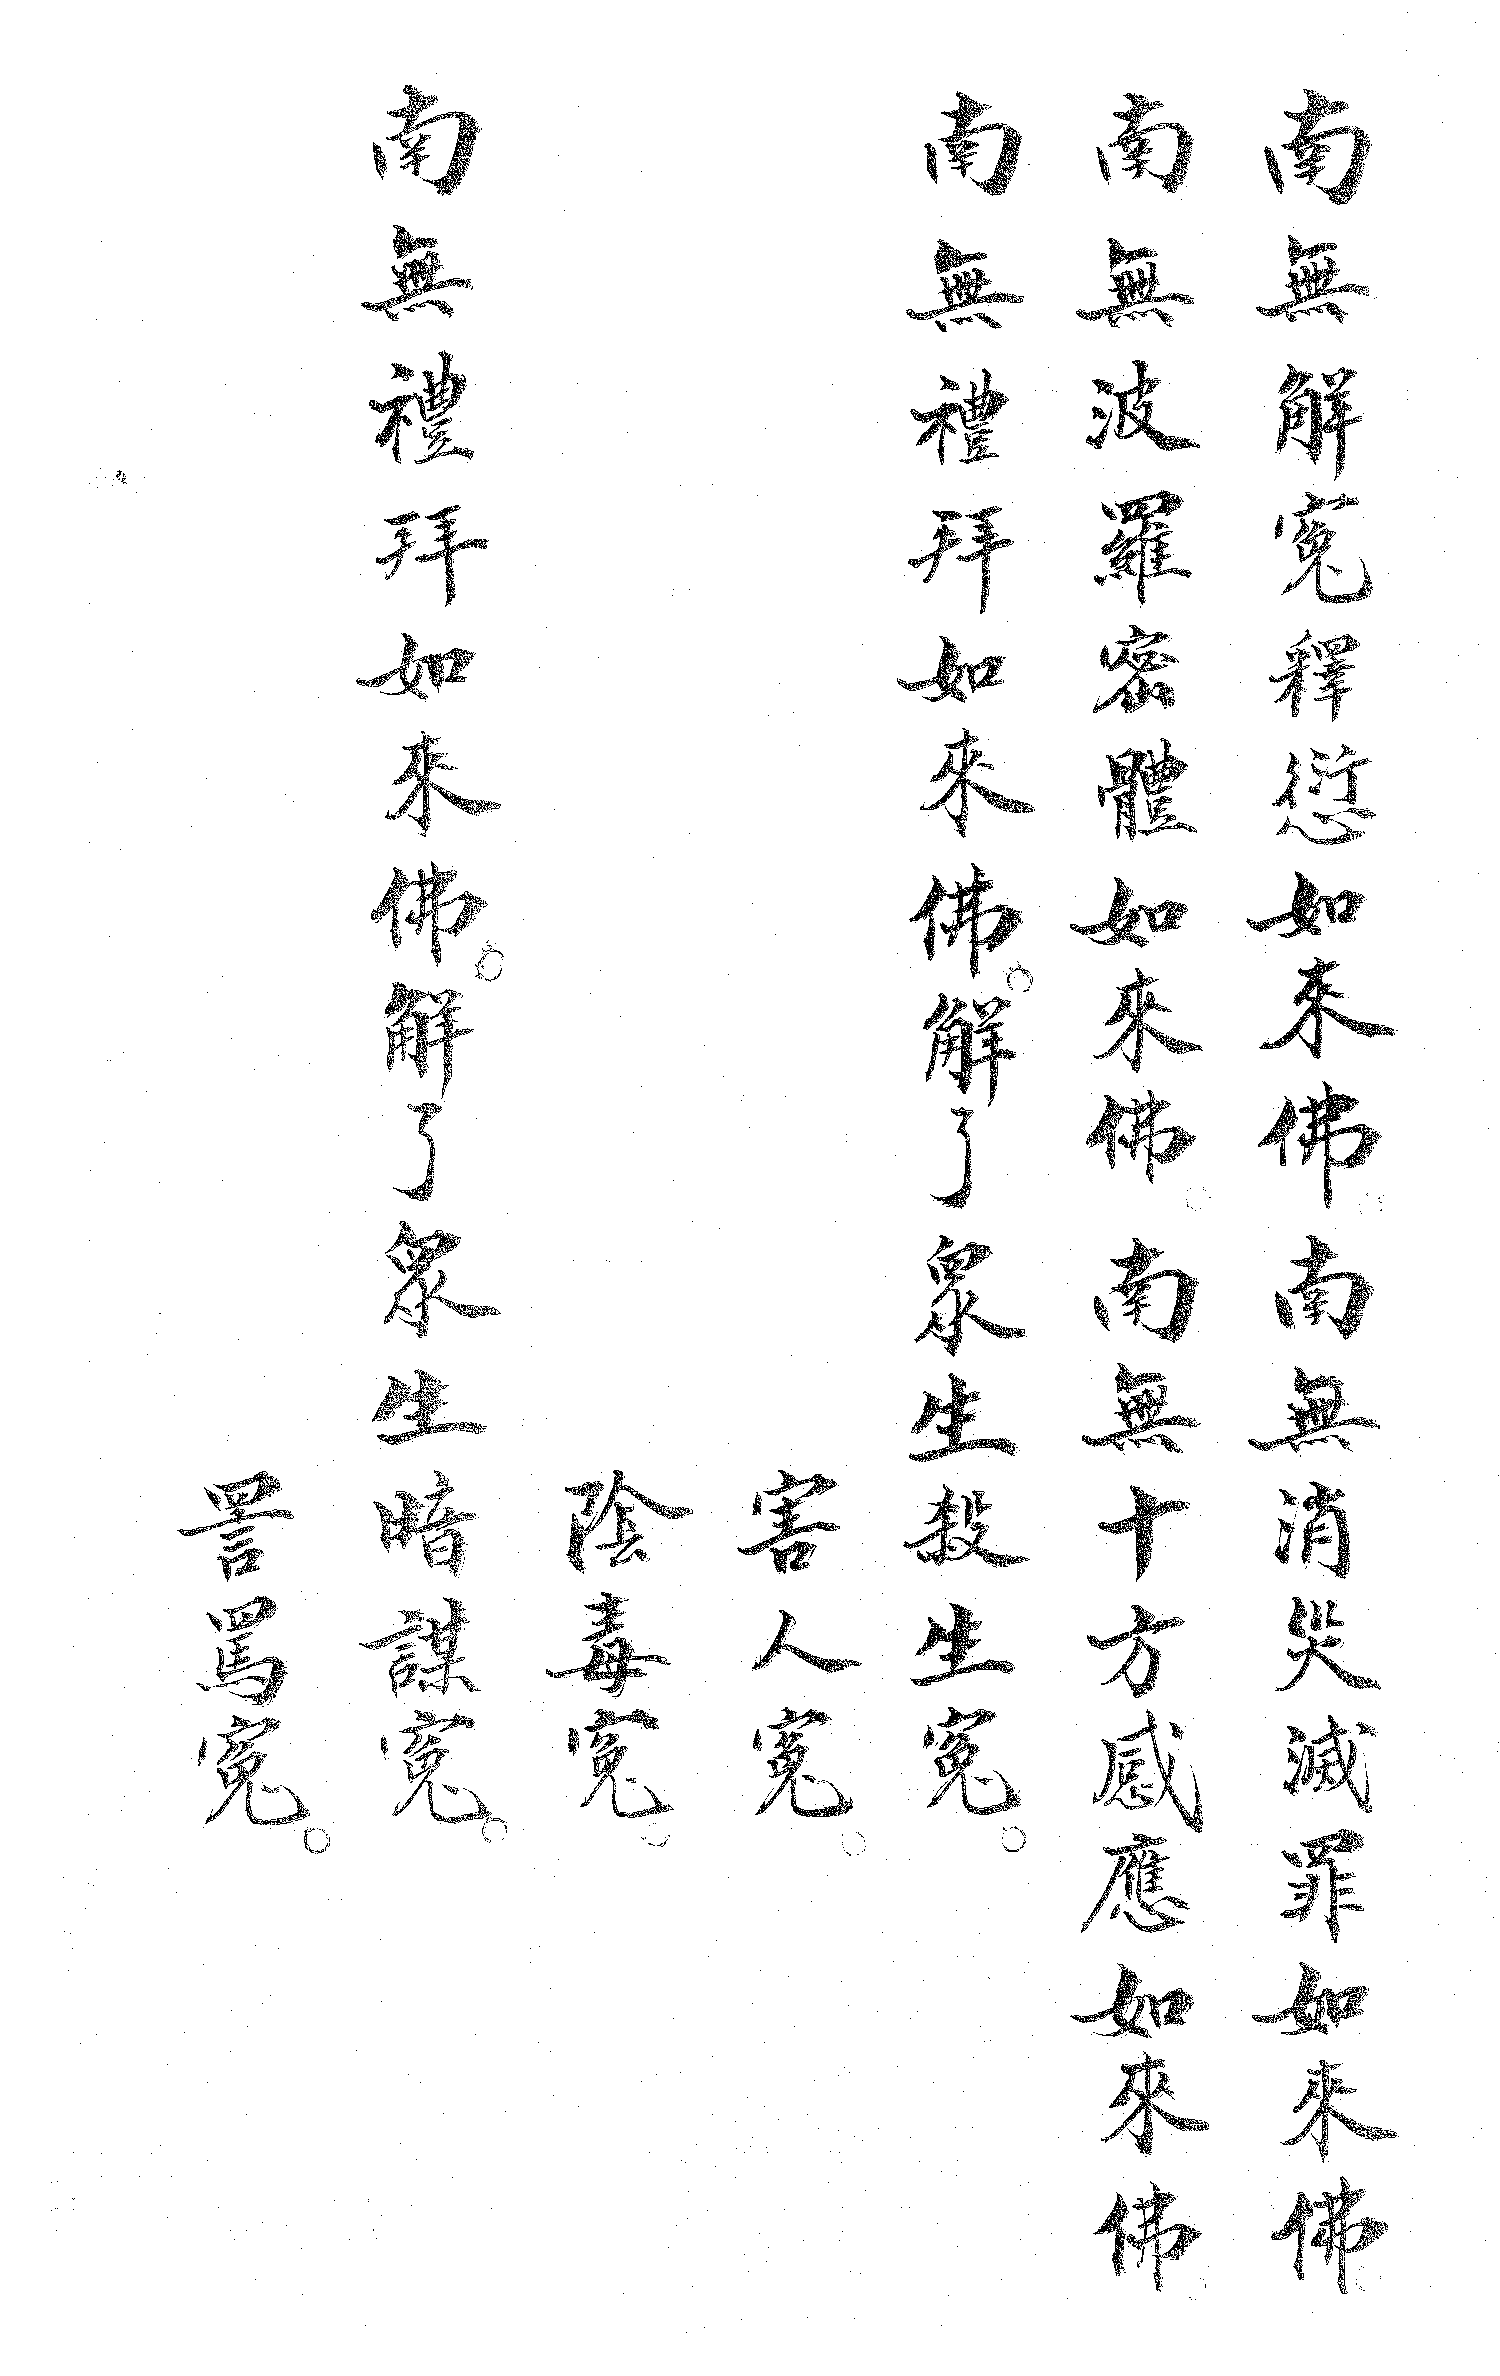 南無解冤釋愆如來佛。南無消災滅罪如來佛。
南無波羅密體如來佛。南無十方感應如來佛。
南無禮拜如來佛。解了眾生殺生冤。
害人冤。
陰毒冤。
南無禮拜如來佛。解了眾生暗謀冤。
詈罵冤。